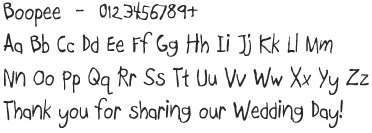 Boopee - 0123456789+
Aa Bb Cc Dd Ee Ff Gg Hh Ii Jj Kk Ll Mm
Nn Oo Pp Qq Rr Ss Tt Uu Vv Ww Xx Yy Zz
Thank you for sharing our Wedding Day!